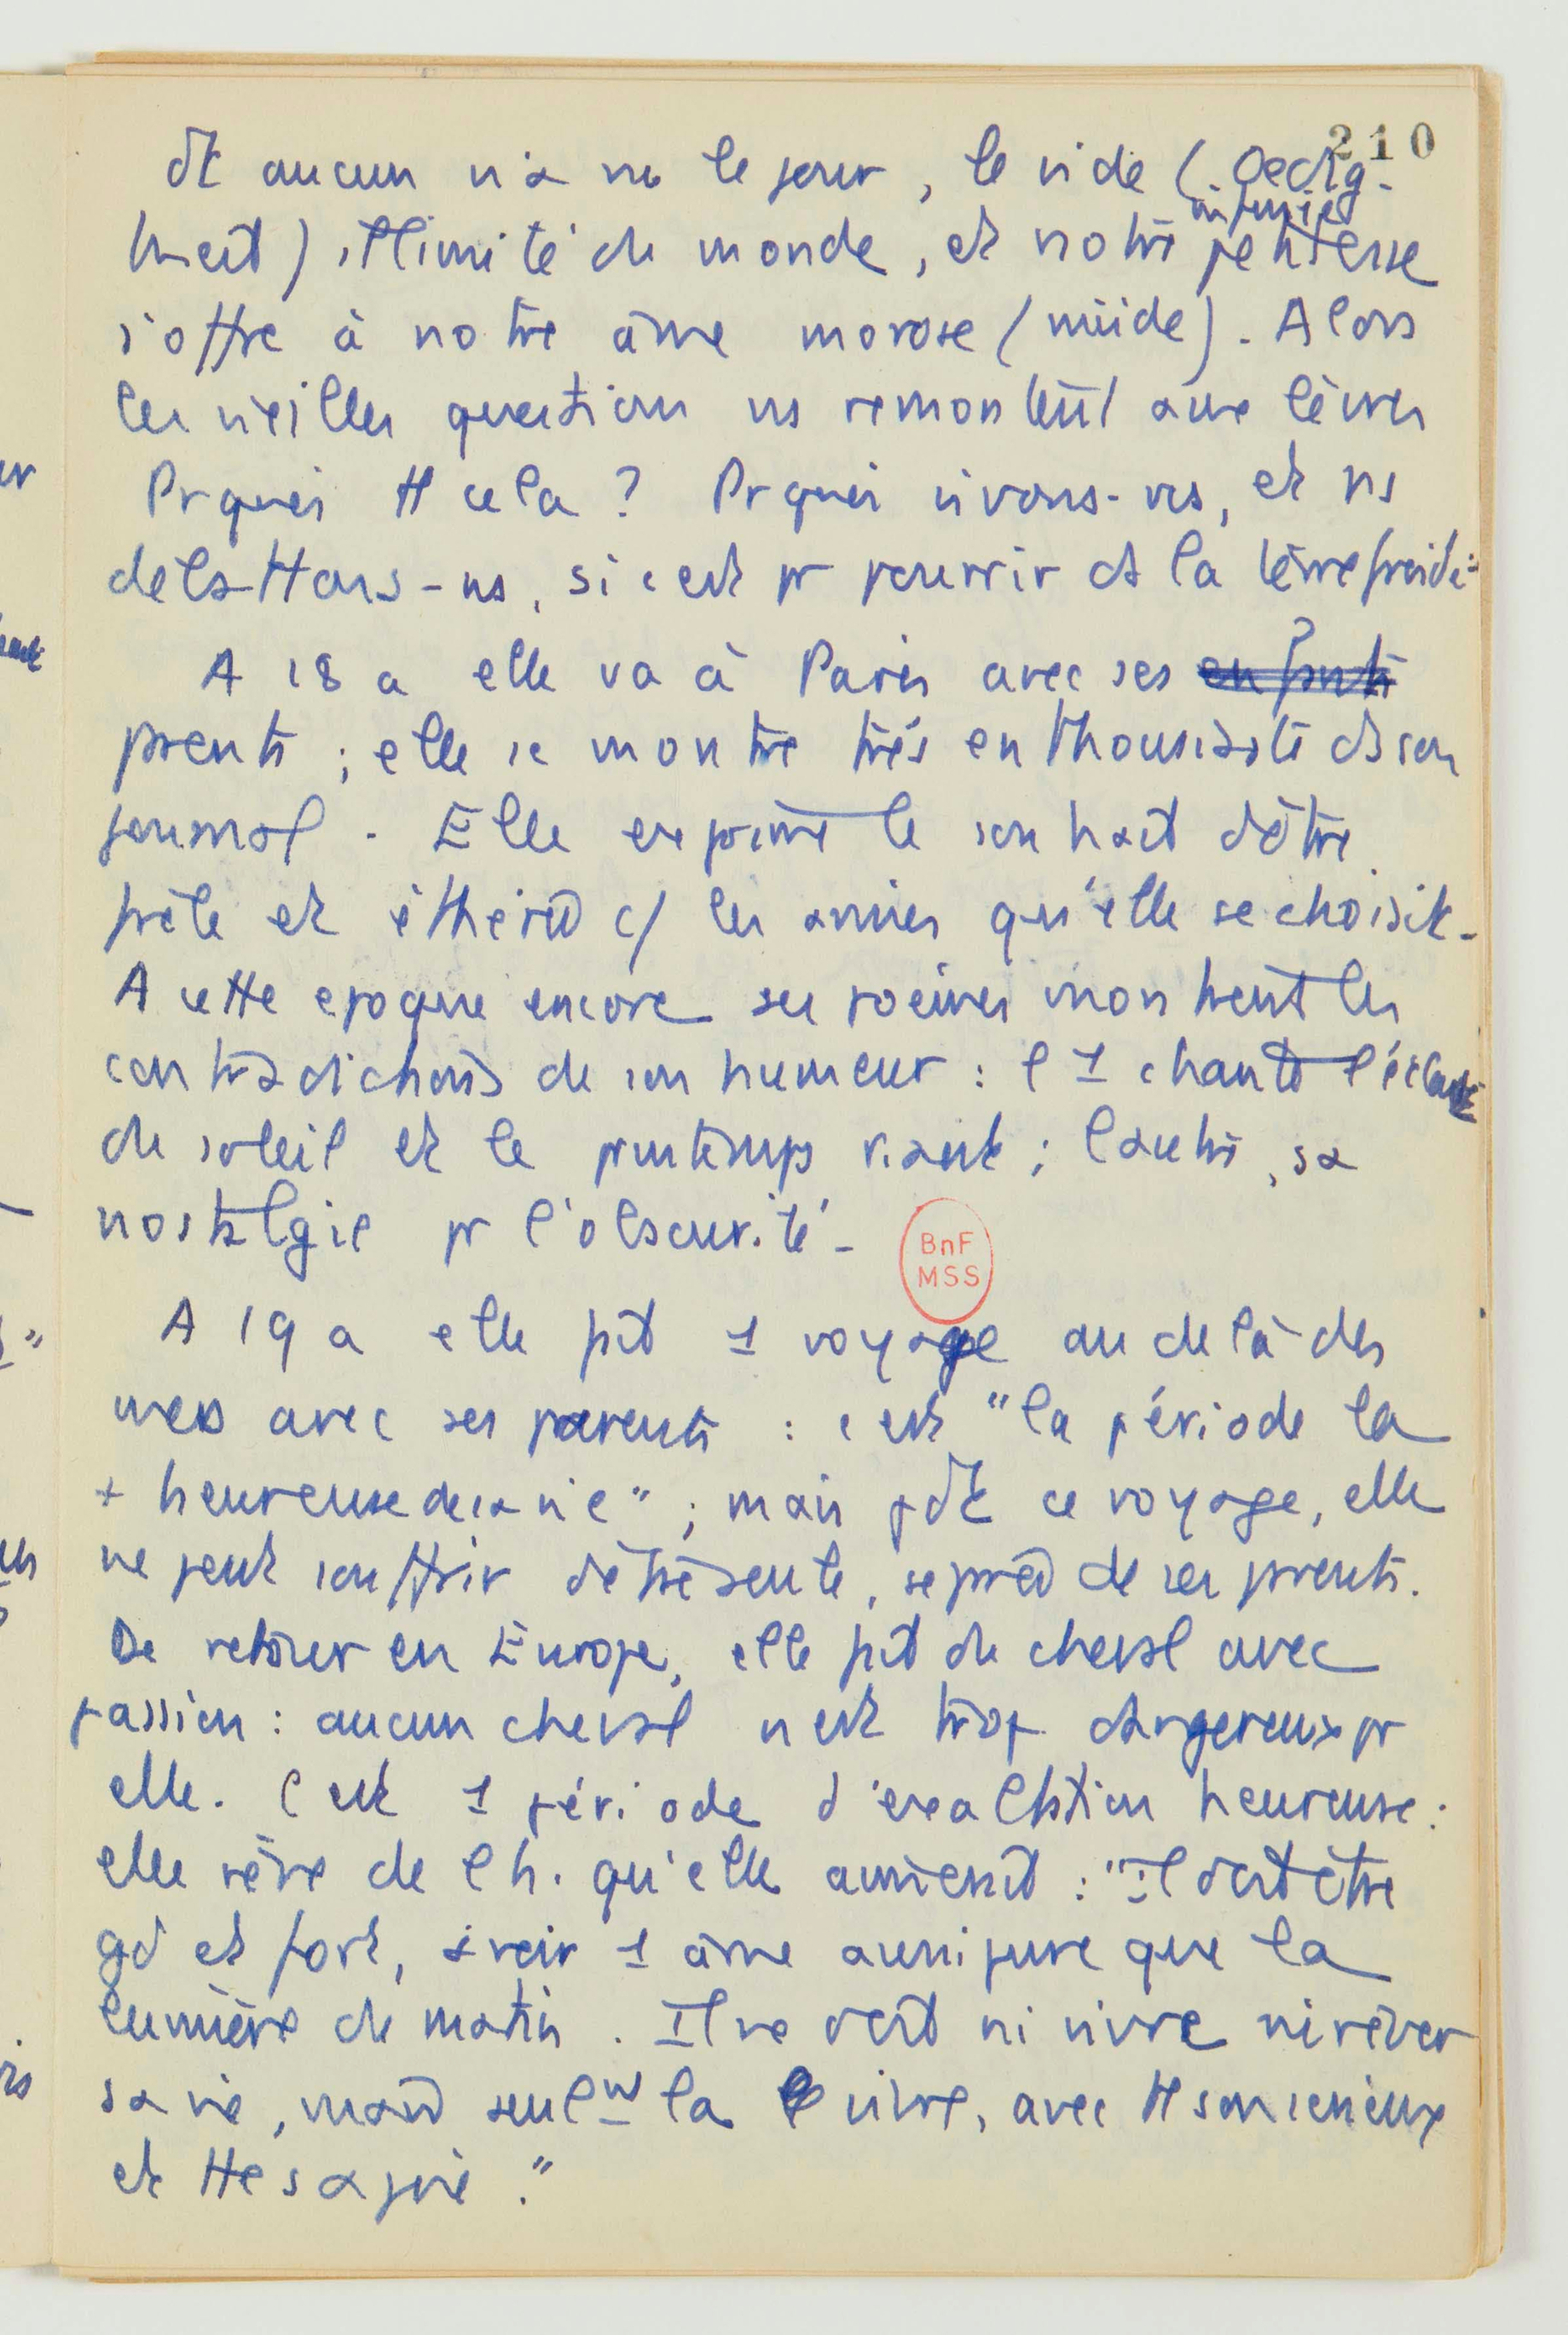 210
dt aucun n'a vu le jour, le vide (Oedig-
infinie
keit) illimité du monde, et notre petitesse
s'offre à notre âme morose (müde). Alors
les vieilles questions ns remontent aux lèvres
Prquoi tt cela ? Prquoi vivons-ns, et ns
débattons-ns, si c'est pr pourrir ds la terre froide :
A 18 a elle va à Paris avec ses
prents ; elle se montre très enthousiaste ds son
journal . Elle exprime le souhait d'être
frêle et éthérée c/ les amies qu'elle se choisit.
A cette epoque encore ses poèmes montrent les
contradictions de son humeur : l'1 chante l'éclat
du soleil et le printemps riant ; l'autre, sa
nostalgie pr l'obscurité.
BnF
MSS
A 19 a elle fait 1 voyage au delà des
mers avec ses parents : c'est "la période la
+ heureuse de sa vie" ; mais pdt ce voyage, elle
ne peut souffrir d'être seule, séprée de ses prents.
De retour en Europe, elle fait du cheval avec
passion : aucun cheval n'est trop dangereux pr
elle. C'est 1 période d'exaltation heureuse :
elle rêve de l'h. qu'elle aimerait : "Il doit être
gd et fort, avoir 1 âme aussi pure que la
lumière du matin . Il ne doit ni vivre ni rêver
sa vie, mais seulmt la vivre, avec tt son sérieux
et tte sa joie ."